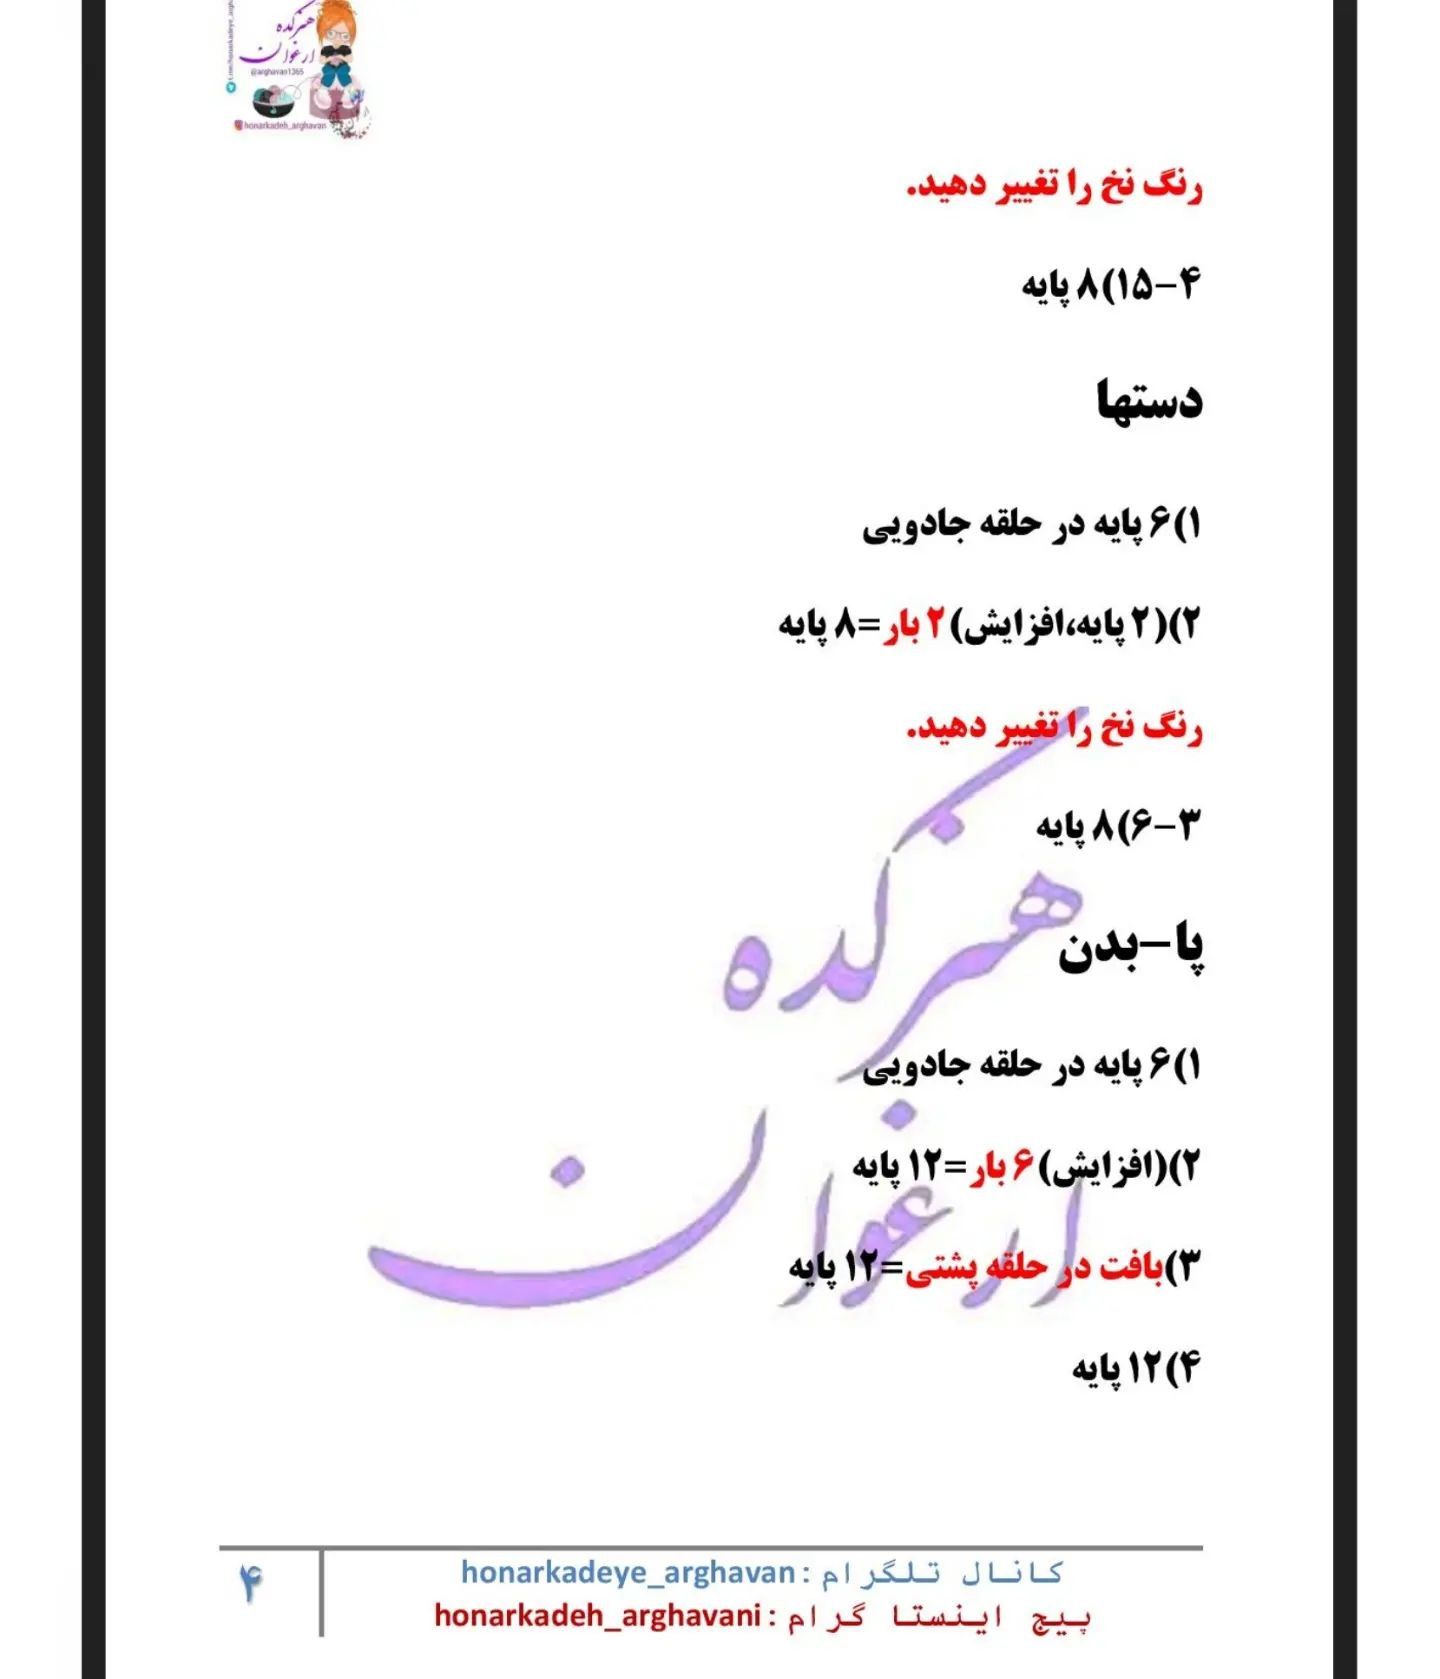 هنرکده
ارغوان
@arghavan1365
honarkadeh_arghavan
رنگ نخ را تغییر دهید.
۴-۱۵)۸ پایه
دستها
۱)۶ پایه در حلقه جادویی
۲)(۲ پایه،افزایش)۲ بار=۸ پایه
رنگ نخ را تغییر دهید.
۳-۶)۸ پایه
پا-بدن
۱)۶ پایه در حلقه جادویی
۲)(افزایش)۶ بار=۱۲ پایه
۳)بافت در حلقه پشتی=۱۲ پایه
۴)۱۲ پایه
هنرکده
ارغوان
کانال تلگرام :honarkadeye_arghavan
پیج اینستا گرام :honarkadeh_arghavani
۴